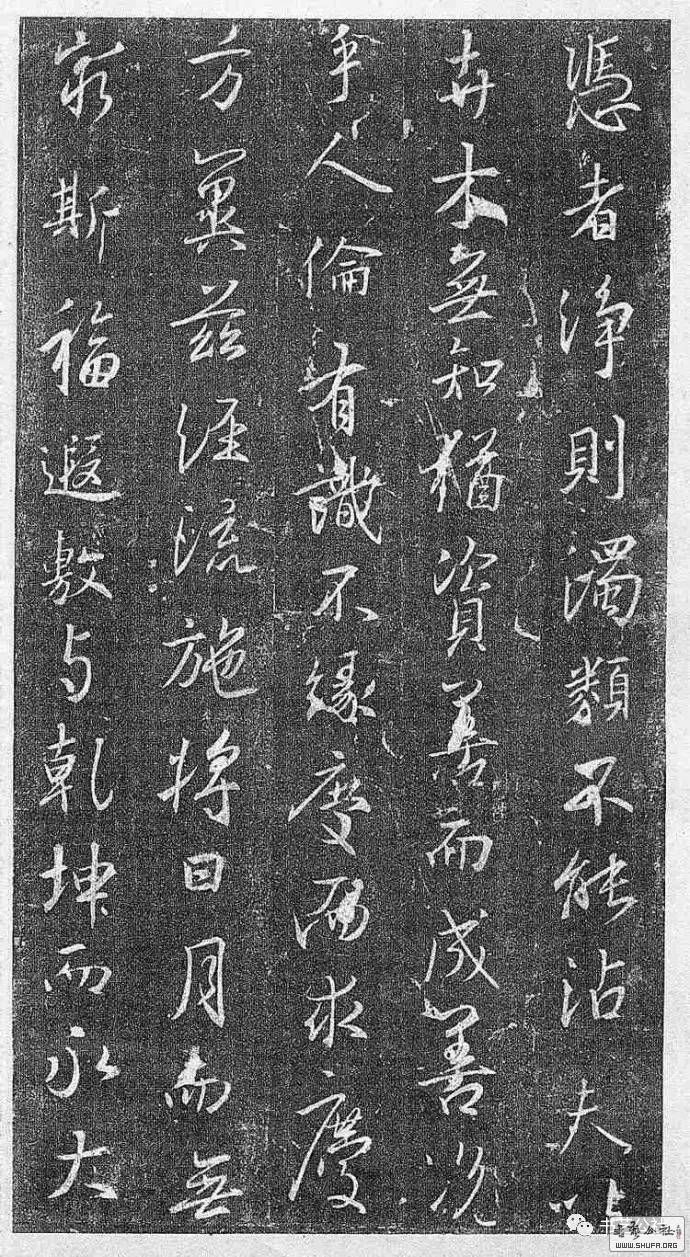 憑者淨則濁類不能沾夫以
卉木無知猶資善而成善況
乎人倫有識不緣慶而求慶
方冀茲經流施將日月而無
窮斯福遐敷与乾坤而永大
WWW.SHUFA.ORG